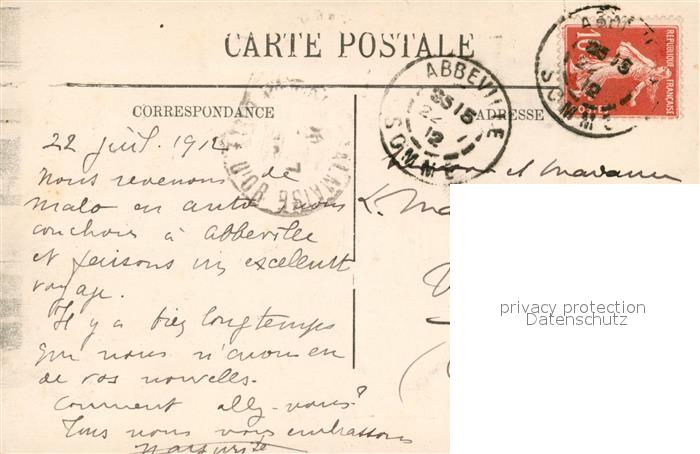 CARTE POSTALE
CORRESPONDANCE
ADRESSE
ABBEVILLE
SOMME
12
ABBEVILLE
SOMME
12
10
RÉPUBLIQUE FRANÇAISE
D'OR
22 juil. 1912
Nous revenons de
Malo en auto, nous
couchons à Abbeville
et faisons un excellent
voyage.
Il y a bien longtemps
que nous n'avons eu
de vos nouvelles.
Comment allez-vous?
Tous nous vous embrassons
Marguerite
et Madame
privacy protection
Datenschutz